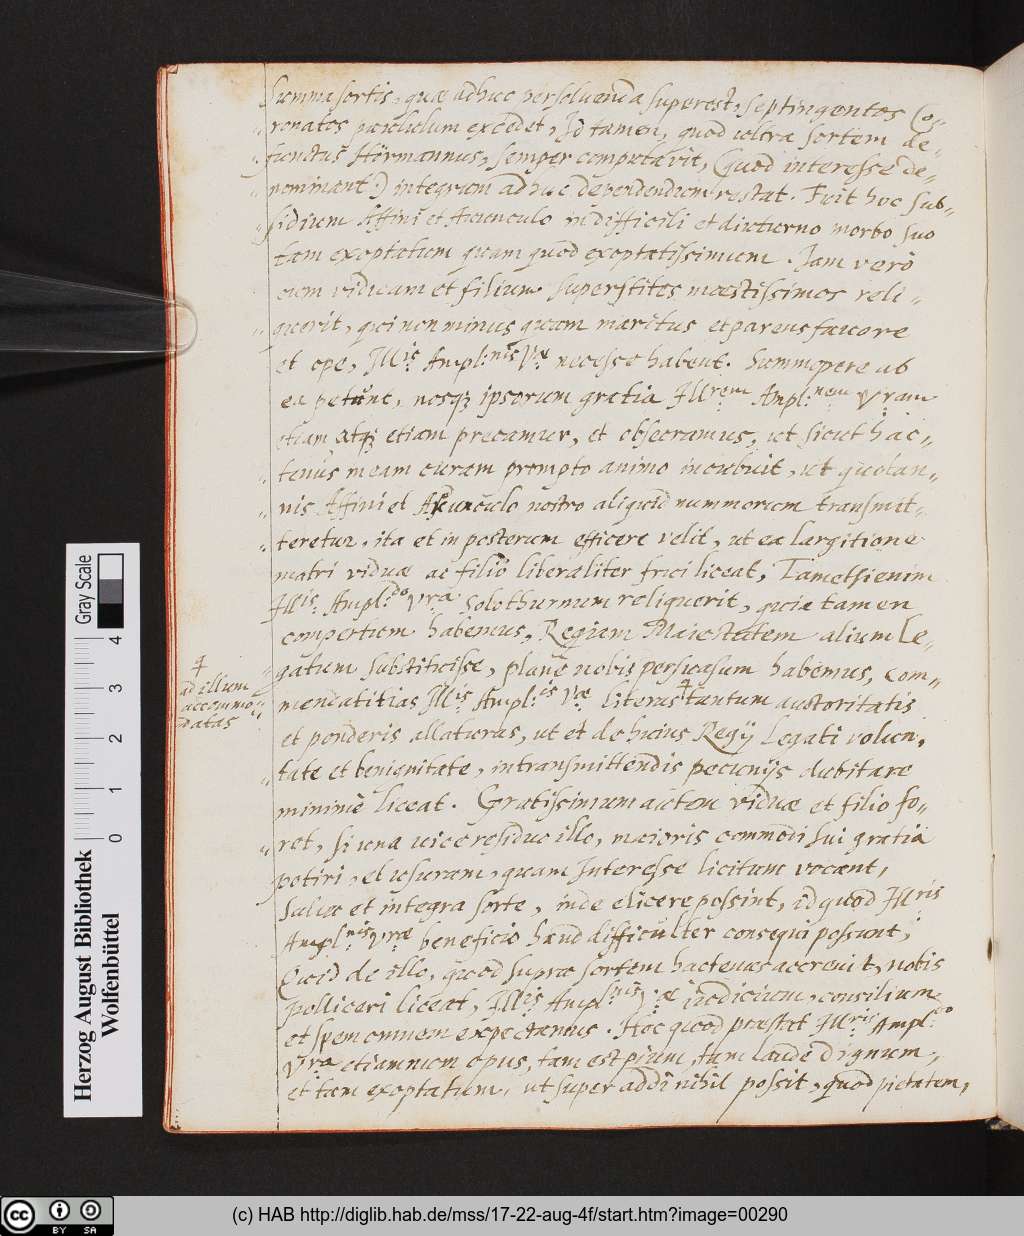 Summa sortis, quæ adhuc persoluenda superest, septingentos Co-
ronatos paululum excedet, Id tamen, quod ultra sortem de-
functus Hörmannus, semper computavit, (quod interesse de-
nominant) integrum adhuc dependendum restat. Fuit hoc sub-
sidium Affini et Auunculo in difficili et diuturno morbo suo
tam exoptatum quam quod exoptatissimum. Iam verò
cum viduam et filium superstites mœstissimos reli-
querit, qui non minus quam maritus et parens fauore
et ope, Illis. Ampl:nis Væ necesse habent. Summopere ab
ea petunt, nosq; ipsorum gratia Illrem Ampl:nem Vram
etiam atq; etiam precamur, et obsecramus, ut sicut hac-
tenus meam curam prompto animo incubuit, ut quotan-
nis Affini et Auunculo nostro aliquid nummorum transmit-
teretur, ita et in posterum efficere velit, ut ea largitione
matri viduæ ac filio liberaliter frui liceat, Tametsi enim
Illis. Ampl:do Vra Solothurnum reliquerit, quia tamen
compertum habemus, Regiam Maiestatem alium Le-
gatum substituisse, planè nobis persuasum habemus, com-
mendatitias Illis Ampl:is Væ literas ‡ tantum auctoritatis
‡
ad illum
accommo-
datas
et ponderis allaturas, ut et de huius Regij Legati volun,
tate et benignitate, in transmittendis pecunijs dubitare
minimè liceat. Gratissimum autem viduæ et filio fo-
ret, si una vice residuo illo, maioris commodi sui gratia
potiri, et usuram, quam Interesse licitum vocant,
salua et integra sorte, inde elicere possint, id quod Illris
Ampl:nis Vræ beneficio haud difficulter consequi possunt,
Quid de illo, quod supra sortem hactenus accreuit, nobis
polliceri liceat, Illis Ampl:nis V:æ iudicium, consilium
et spem omnem expectamus. Hoc quod præstat Illris Ampl:do
Vra etiamnum opus, tam est pium, tum laude dignum,
et tam exoptatum, ut super addi nihil possit, quod pietatem,
Herzog August Bibliothek
Wolfenbüttel
0 1 2 3 4
Gray Scale
cc BY SA
(c) HAB http://diglib.hab.de/mss/17-22-aug-4f/start.htm?image=00290